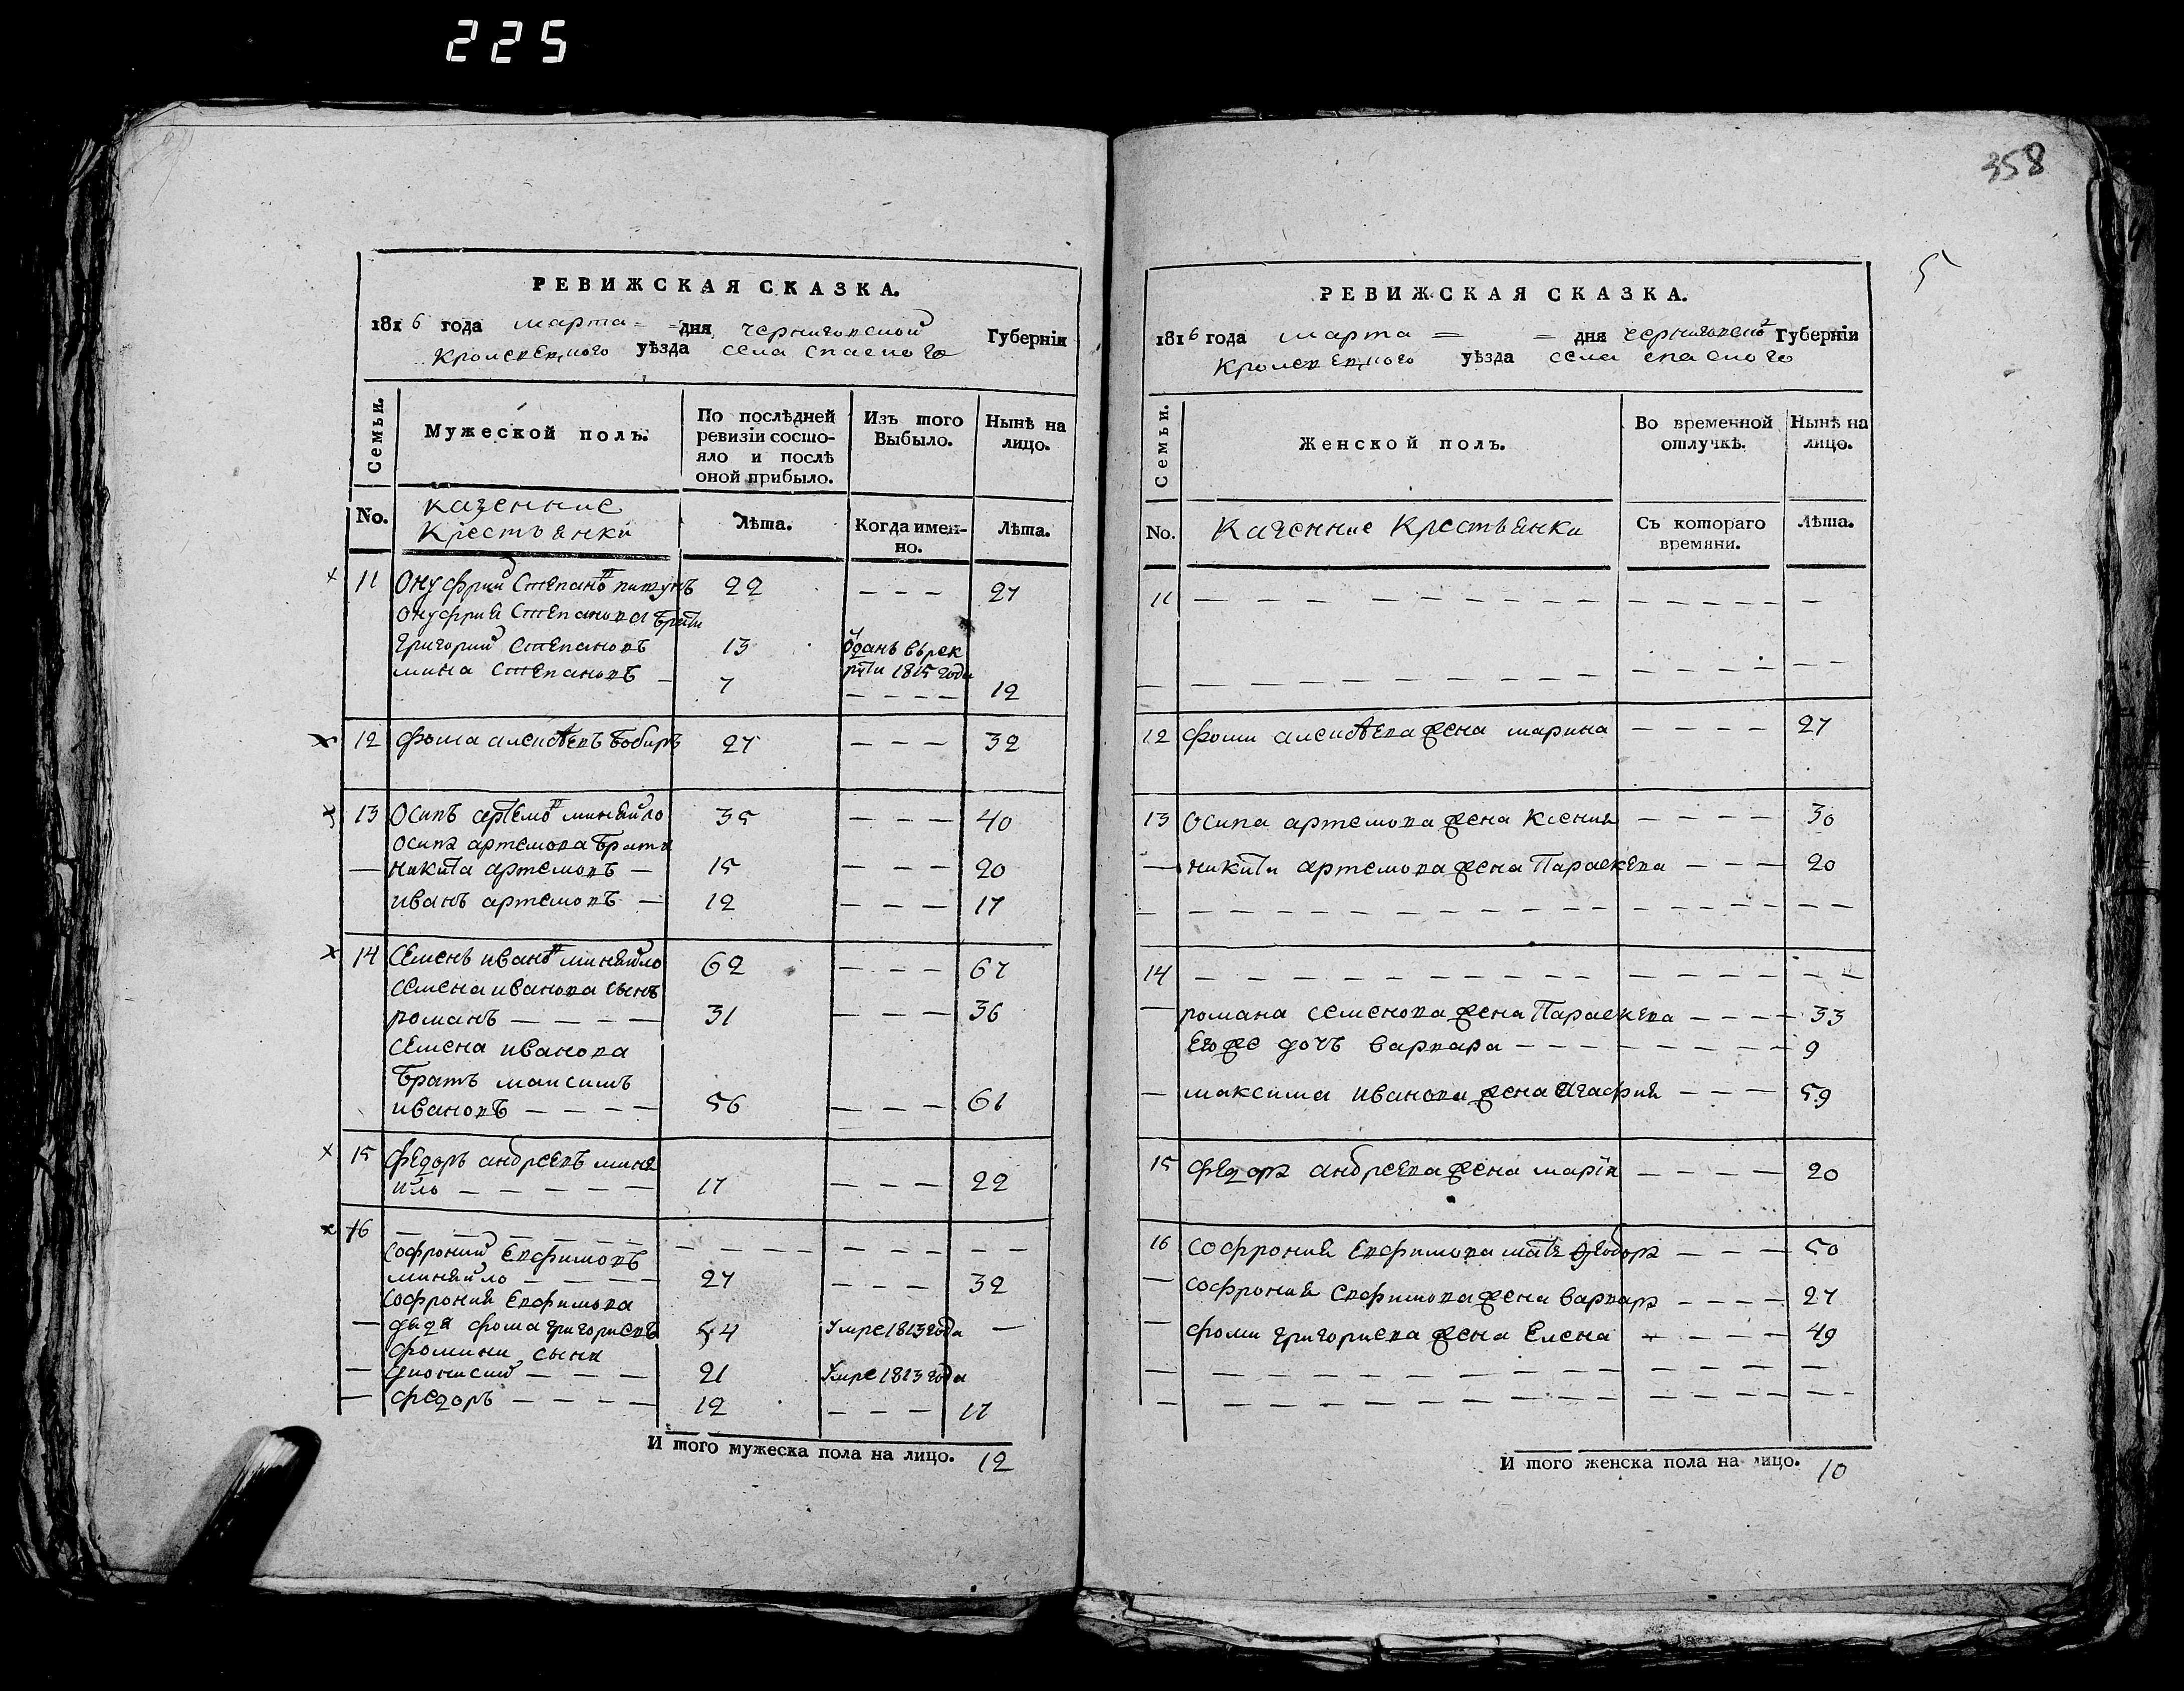 225
РЕВИЖСКАЯ СКАЗКА.
1816 года марта = дня черниговской Губерніи
Кролевецкого уѣзда села спаского
Семьи.
Мужеской полъ.
По послѣдней ревизіи состояло и послѣ оной прибыло.
Изъ того Выбыло.
Нынѣ на лицо.
No.
казенние Крестьянки
Лѣта.
Когда именно.
Лѣта.
11 Онуфрий Степановъ 22 - - - 27
Онуфрия Степанова брати
григорий Степановъ 13 Отданъ въ рек
мина Степановъ - 7 рути 1815 года
- - - - 12
12 фома алексѣевъ бобиръ 27 - - - 32
13 Осипъ артемовъ миняйло 35 - - - 40
осипа артемова брати
никита артемовъ - 15 - - - 20
иванъ артемовъ - 12 - - - 17
14 Семенъ ивановъ миняйло 62 - - - 67
семена иванова сынъ
романъ - - - - 31 - - - 36
семена иванова
братъ максимъ
ивановъ - - - - 56 - - - 61
15 федоръ андреевъ миня
йло - - - - - 17 - - - 22
16 - - - - - - - - - - - - - -
софроний Евфимовъ
миняйло - - - - 27 - - - 32
софрония Евфимова
дядя фома григориевъ 54 Умре 1813 года -
фомини сыни
дионисий - - - 21 Умре 1813 года
федоръ - - - - 12 - - - 17
И того мужеска пола на лицо. 12
358
5
РЕВИЖСКАЯ СКАЗКА.
1816 года марта = = дня черниговской Губерніи
Кролевецкого уѣзда села спаского
Семьи.
Женской полъ.
Во временной отлучкѣ.
Нынѣ на лицо.
No.
Казенние Крестьянки
Съ котораго времяни.
Лѣта.
11 - - - - - - - - - - - - - - -
- - - - - - - - - - - - - - -
12 фоми алексѣева жена марина - - - - 27
13 Осипа артемова жена Ксения - - - - 30
никити артемова жена Параскева - - - 20
- - - - - - - - - - - - - - -
14 - - - - - - - - - - - - - - -
романа семенова жена Параскева - - - - 33
Его же дочъ варвара - - - - - - - - 9
максима иванова жена Агафия - - - 59
15 федора андреева жена марія - - - - 20
16 софрония Евфимова мать - - - 50
софрония Евфимова жена варвара - - - - 27
фоми григориева жена Елена - - - - 49
- - - - - - - - - - - - - - -
- - - - - - - - - - - - - - -
И того женска пола на лицо. 10